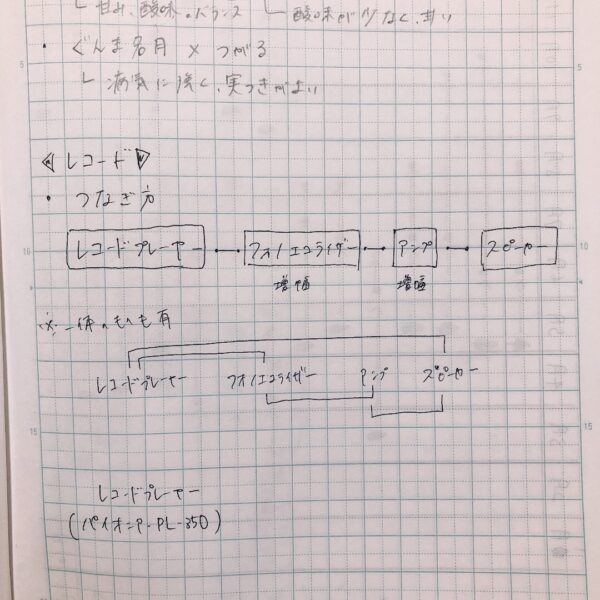 └ 甘み、酸味のバランス └ 酸味が少なく、甘い
・ぐんま名月 × つがる
└ 病気に強く、実つきがよい
◁レコード▷
・つなぎ方
レコードプレーヤー フォノイコライザー アンプ スピーカー
増幅 増幅
※一体のもの有
レコードプレーヤー フォノイコライザー アンプ スピーカー
レコードプレーヤー
(パイオニア・PL-350)
5
5
10
10
15
15